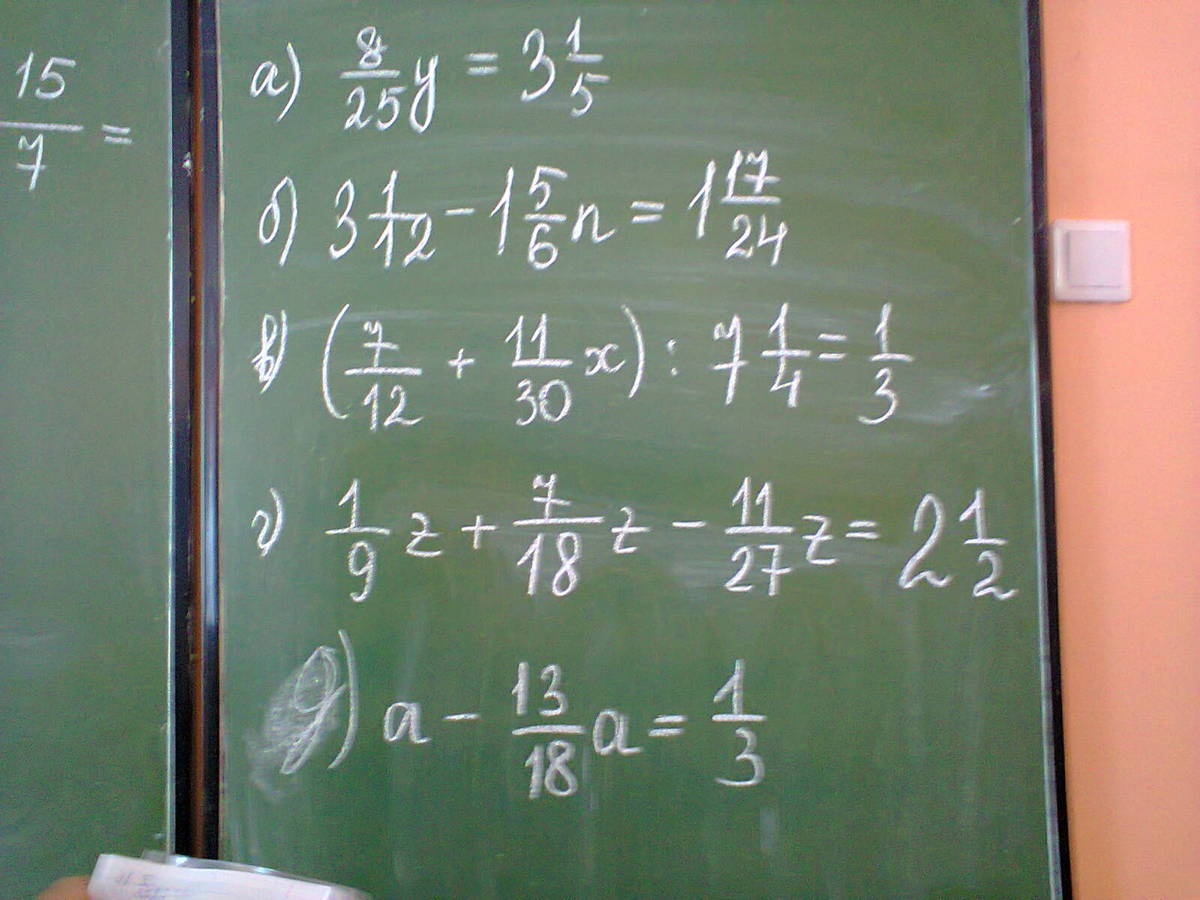 15/7 =
а) 8/25 y = 3 1/5
б) 3 1/12 - 1 5/6 n = 1 17/24
в) (7/12 + 11/30 x) : 7 1/4 = 1/3
г) 1/9 z + 7/18 z - 11/27 z = 2 1/2
д) a - 13/18 a = 1/3